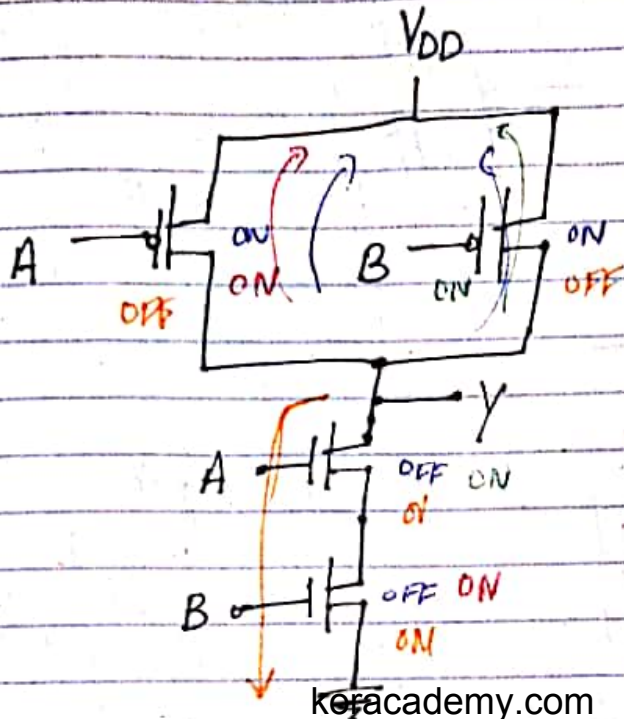 VDD
A
ON
B
ON
ON
ON
OFF
OFF
Y
A
OFF ON
B
OFF ON
ON
keracademy.com